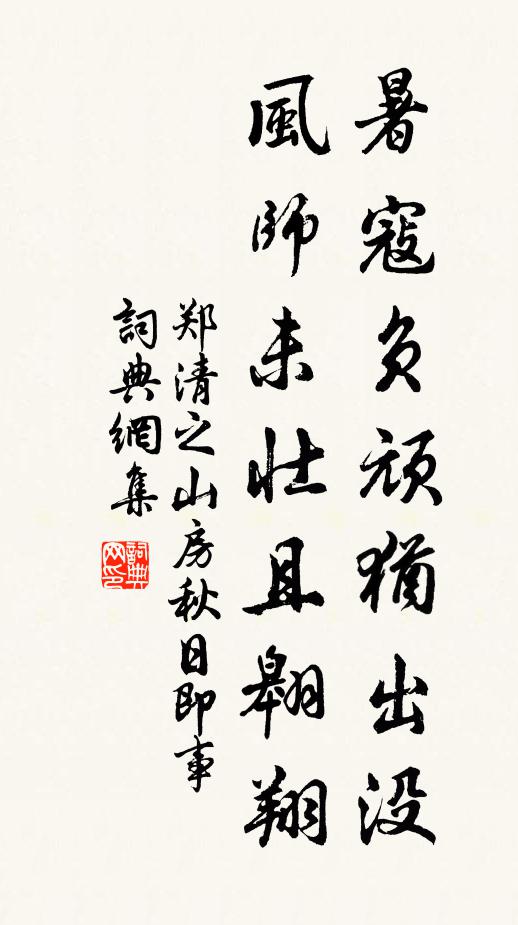 暑寇负顽猶出没
風師未壮且翱翔
郑清之山房秋日即事
詞典網集
詞典网印